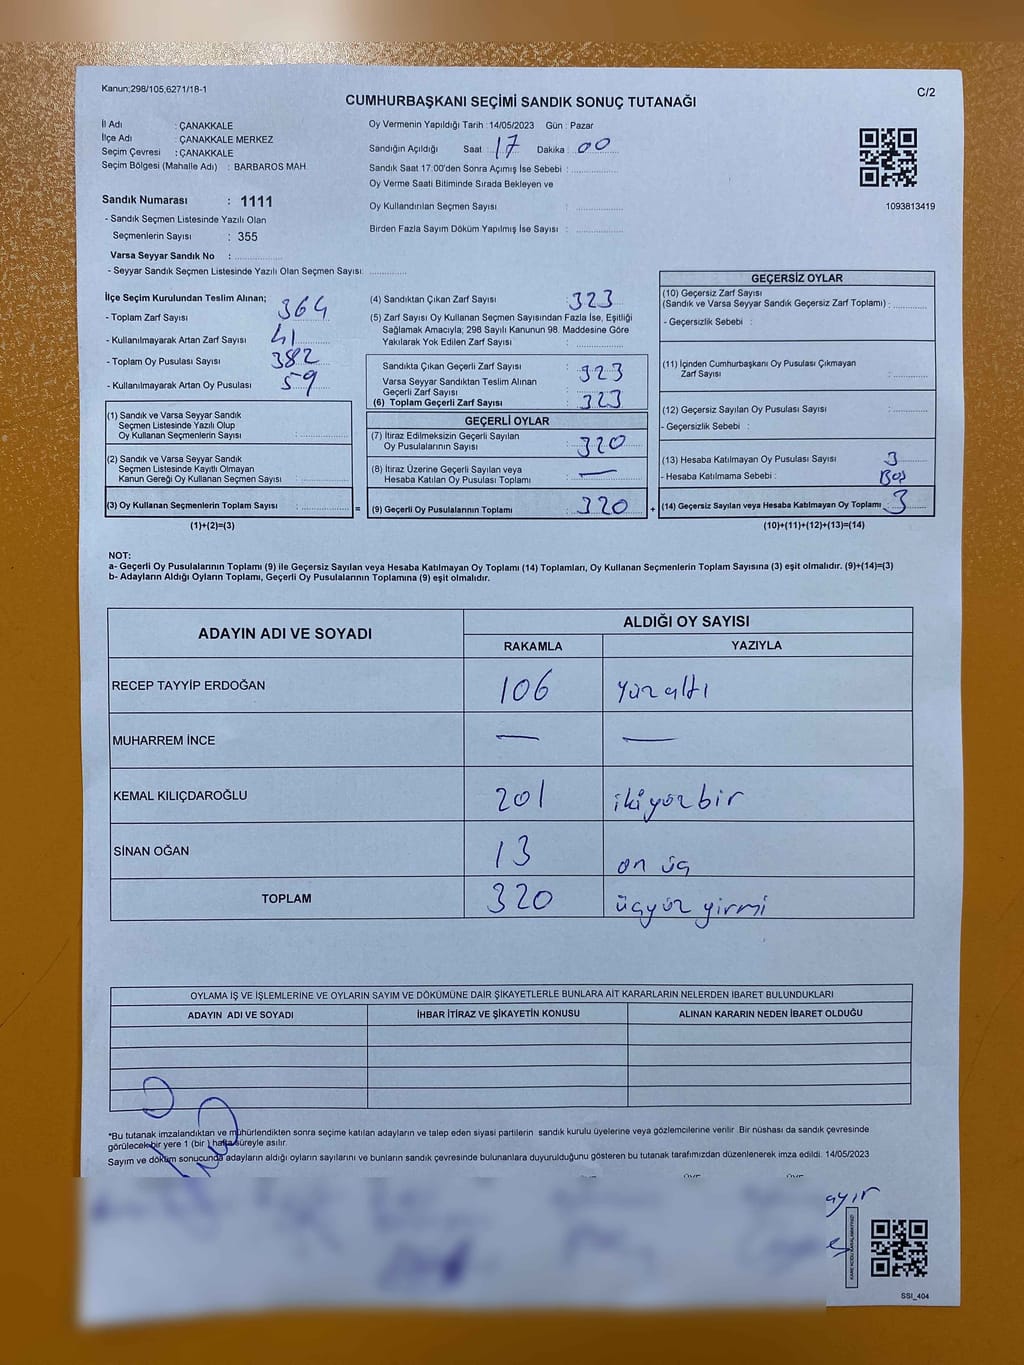 Kanun;298/105,6271/18-1
C/2
CUMHURBAŞKANI SEÇİMİ SANDIK SONUÇ TUTANAĞI
İl Adı : ÇANAKKALE
İlçe Adı : ÇANAKKALE MERKEZ
Seçim Çevresi : ÇANAKKALE
Seçim Bölgesi (Mahalle Adı) : BARBAROS MAH
Sandık Numarası : 1111
- Sandık Seçmen Listesinde Yazılı Olan
Seçmenlerin Sayısı : 355
Varsa Seyyar Sandık No :
- Seyyar Sandık Seçmen Listesinde Yazılı Olan Seçmen Sayısı:
Oy Vermenin Yapıldığı Tarih :14/05/2023 Gün : Pazar
Sandığın Açıldığı Saat : 17 Dakika : 00
Sandık Saat 17:00'den Sonra Açımış İse Sebebi :
Oy Verme Saati Bitiminde Sırada Bekleyen ve
Oy Kullandırılan Seçmen Sayısı :
Birden Fazla Sayım Döküm Yapılmış İse Sayısı :
1093813419
İlçe Seçim Kurulundan Teslim Alınan;
- Toplam Zarf Sayısı 364
- Kullanılmayarak Artan Zarf Sayısı 41
- Toplam Oy Pusulası Sayısı 382
- Kullanılmayarak Artan Oy Pusulası 59
(1) Sandık ve Varsa Seyyar Sandık
Seçmen Listesinde Yazılı Olup
Oy Kullanan Seçmenlerin Sayısı :
(2) Sandık ve Varsa Seyyar Sandık
Seçmen Listesinde Kayıtlı Olmayan
Kanun Gereği Oy Kullanan Seçmen Sayısı :
(3) Oy Kullanan Seçmenlerin Toplam Sayısı : =
(1)+(2)=(3)
(4) Sandıktan Çıkan Zarf Sayısı : 323
(5) Zarf Sayısı Oy Kullanan Seçmen Sayısından Fazla İse, Eşitliği
Sağlamak Amacıyla; 298 Sayılı Kanunun 98. Maddesine Göre
Yakılarak Yok Edilen Zarf Sayısı :
Sandıkta Çıkan Geçerli Zarf Sayısı : 323
Varsa Seyyar Sandıktan Teslim Alınan
Geçerli Zarf Sayısı :
(6) Toplam Geçerli Zarf Sayısı : 323
GEÇERLİ OYLAR
(7) İtiraz Edilmeksizin Geçerli Sayılan
Oy Pusulalarının Sayısı : 320
(8) İtiraz Üzerine Geçerli Sayılan veya
Hesaba Katılan Oy Pusulası Toplamı : —
(9) Geçerli Oy Pusulalarının Toplamı : 320 +
GEÇERSİZ OYLAR
(10) Geçersiz Zarf Sayısı
(Sandık ve Varsa Seyyar Sandık Geçersiz Zarf Toplamı) :
- Geçersizlik Sebebi :
(11) İçinden Cumhurbaşkanı Oy Pusulası Çıkmayan
Zarf Sayısı :
(12) Geçersiz Sayılan Oy Pusulası Sayısı :
- Geçersizlik Sebebi :
(13) Hesaba Katılmayan Oy Pusulası Sayısı : 3
- Hesaba Katılmama Sebebi : Boş
(14) Geçersiz Sayılan veya Hesaba Katılmayan Oy Toplamı : 3
(10)+(11)+(12)+(13)=(14)
NOT:
a- Geçerli Oy Pusulalarının Toplamı (9) ile Geçersiz Sayılan veya Hesaba Katılmayan Oy Toplamı (14) Toplamları, Oy Kullanan Seçmenlerin Toplam Sayısına (3) eşit olmalıdır. (9)+(14)=(3)
b- Adayların Aldığı Oyların Toplamı, Geçerli Oy Pusulalarının Toplamına (9) eşit olmalıdır.
ADAYIN ADI VE SOYADI
ALDIĞI OY SAYISI
RAKAMLA YAZIYLA
RECEP TAYYİP ERDOĞAN 106 yüz altı
MUHARREM İNCE — —
KEMAL KILIÇDAROĞLU 201 ikiyüz bir
SİNAN OĞAN 13 on üç
TOPLAM 320 üçyüz yirmi
OYLAMA İŞ VE İŞLEMLERİNE VE OYLARIN SAYIM VE DÖKÜMÜNE DAİR ŞİKAYETLERLE BUNLARA AİT KARARLARIN NELERDEN İBARET BULUNDUKLARI
ADAYIN ADI VE SOYADI İHBAR İTİRAZ VE ŞİKAYETİN KONUSU ALINAN KARARIN NEDEN İBARET OLDUĞU
*Bu tutanak imzalandıktan ve mühürlendikten sonra seçime katılan adayların ve talep eden siyasi partilerin sandık kurulu üyelerine veya gözlemcilerine verilir .Bir nüshası da sandık çevresinde
görülecek bir yere 1 (bir ) hafta süreyle asılır.
Sayım ve döküm sonucunda adayların aldığı oyların sayılarını ve bunların sandık çevresinde bulunanlara duyurulduğunu gösteren bu tutanak tarafımızdan düzenlenerek imza edildi. 14/05/2023
SSİ_404